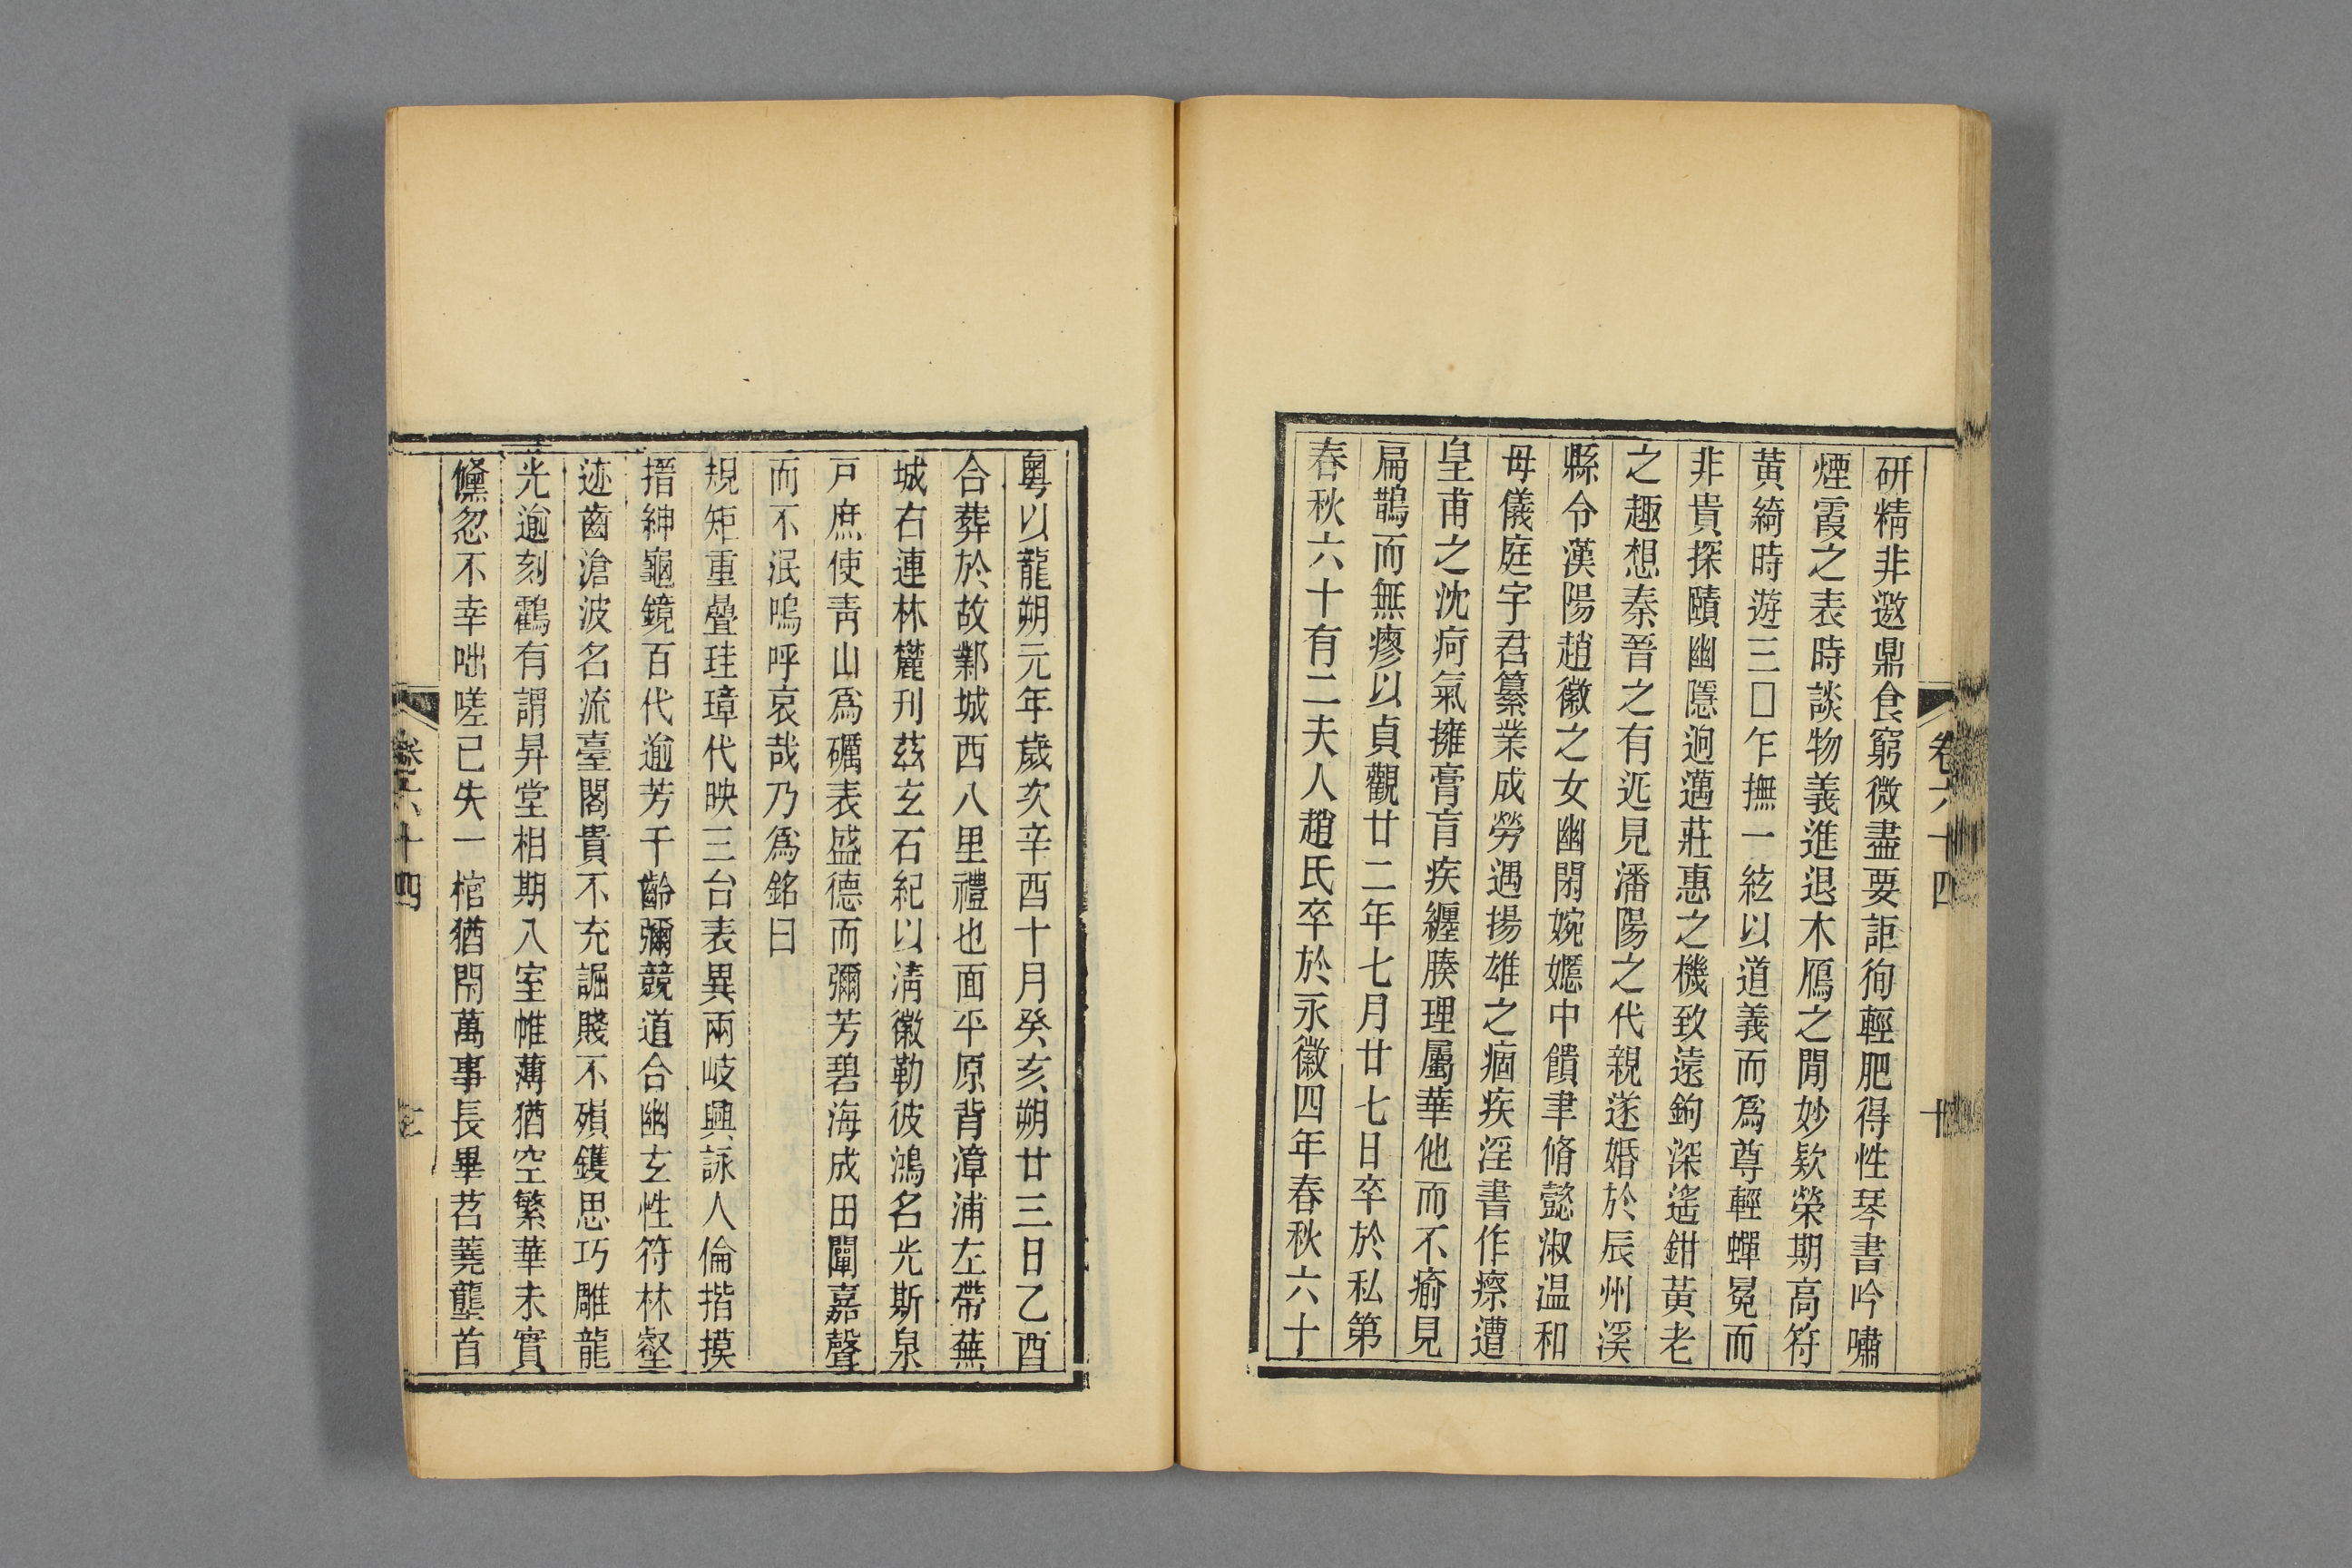 研精非邀鼎食窮微盡要詎徇輕肥得性琴書吟嘯
煙霞之表時談物義進退木鴈之閒妙欵榮期高符
黃綺時遊三□乍撫一絃以道義而爲尊輕蟬冕而
非貴探賾幽隱迥邁莊惠之機致遠鉤深遙鉗黃老
之趣想秦晉之有迡見潘陽之代親遂婚於辰州溪
縣令漢陽趙徽之女幽閑婉嫕中饋聿脩懿淑温和
毋儀庭宇君纂業成勞遇揚雄之痼疾淫書作瘵遭
皇甫之沈疴氣擁膏肓疾纏腠理屬華他而不瘉見
扁鵲而無瘳以貞觀廿二年七月廿七日卒於私第
春秋六十有二夫人趙氏卒於永徽四年春秋六十
粵以龍朔元年歲次辛酉十月癸亥朔廿三日乙酉
合葬於故鄴城西八里禮也面平原背漳浦左帶蕪
城右連林麓刊茲玄石紀以淸徽勒彼鴻名光斯泉
戸庶使靑山爲礪表盛德而彌芳碧海成田闡嘉聲
而不泯嗚呼哀哉乃爲銘曰
規矩重疊珪璋代映三台表異兩岐興詠人倫揩摸
搢紳龜鏡百代逾芳千齡彌競道合幽玄性符林壑
迹齒滄波名流臺閣貴不充詘賤不殞鑊思巧雕龍
光逾刻鶴有謂昇堂相期入室帷薄猶空繁華未實
儵忽不幸咄嗟已失一棺猶閇萬事長畢苕蕘壟首
卷六十四
卷六十四